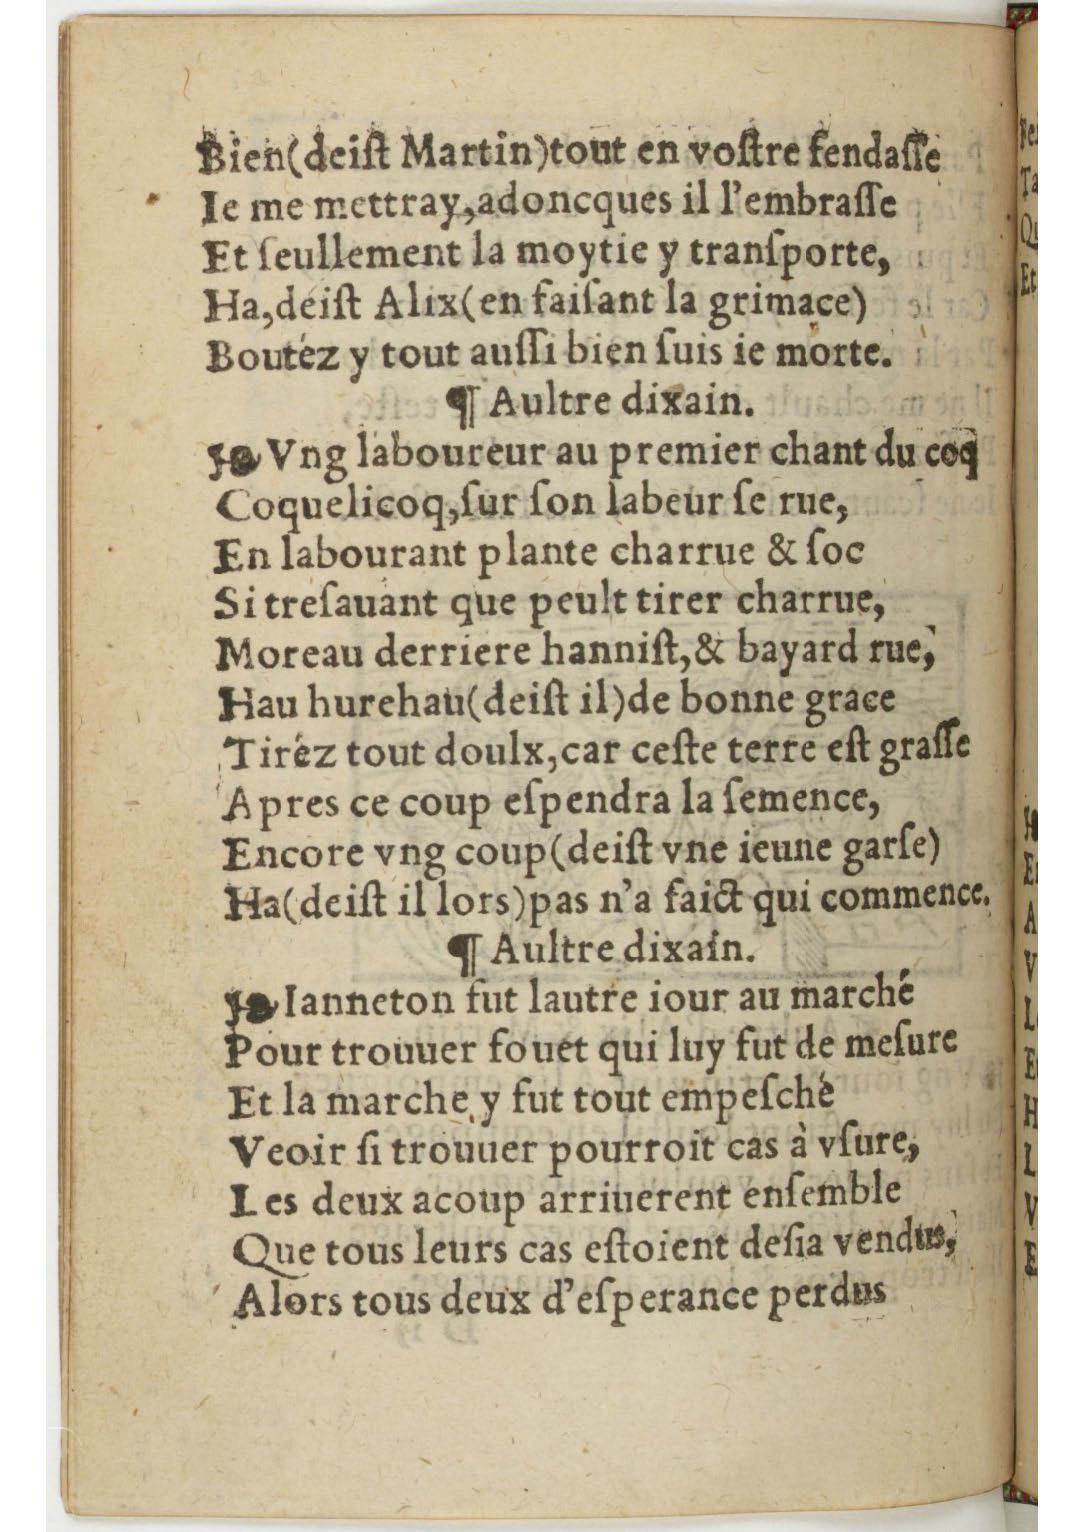 Bien(deiſt Martin)tout en voſtre fendaſſe
Ie me mettray,adoncques il l'embraſſe
Et ſeullement la moytie y tranſporte,
Ha,deiſt Alix(en faiſant la grimace)
Boutéz y tout auſſi bien ſuis ie morte.
¶ Aultre dixain.
Vng laboureur au premier chant du coq
Coquelicoq,ſur ſon labeur ſe rue,
En labourant plante charrue & ſoc
Si treſauant que peult tirer charrue,
Moreau derriere hanniſt,& bayard rue,
Hau hurehau(deiſt il)de bonne grace
Tiréz tout doulx,car ceſte terre eſt graſſe
Apres ce coup eſpendra la ſemence,
Encore vng coup(deiſt vne ieune garſe)
Ha(deiſt il lors)pas n'a faict qui commence.
¶ Aultre dixain.
Ianneton fut lautre iour au marché
Pour trouuer fouet qui luy fut de meſure
Et la marche y fut tout empeſché
Veoir ſi trouuer pourroit cas à vſure,
Les deux acoup arriuerent enſemble
Que tous leurs cas eſtoient deſia vendus,
Alors tous deux d'eſperance perdus
Fe
Ta
Qu
Et
E
A
V
L
E
H
L
V
E